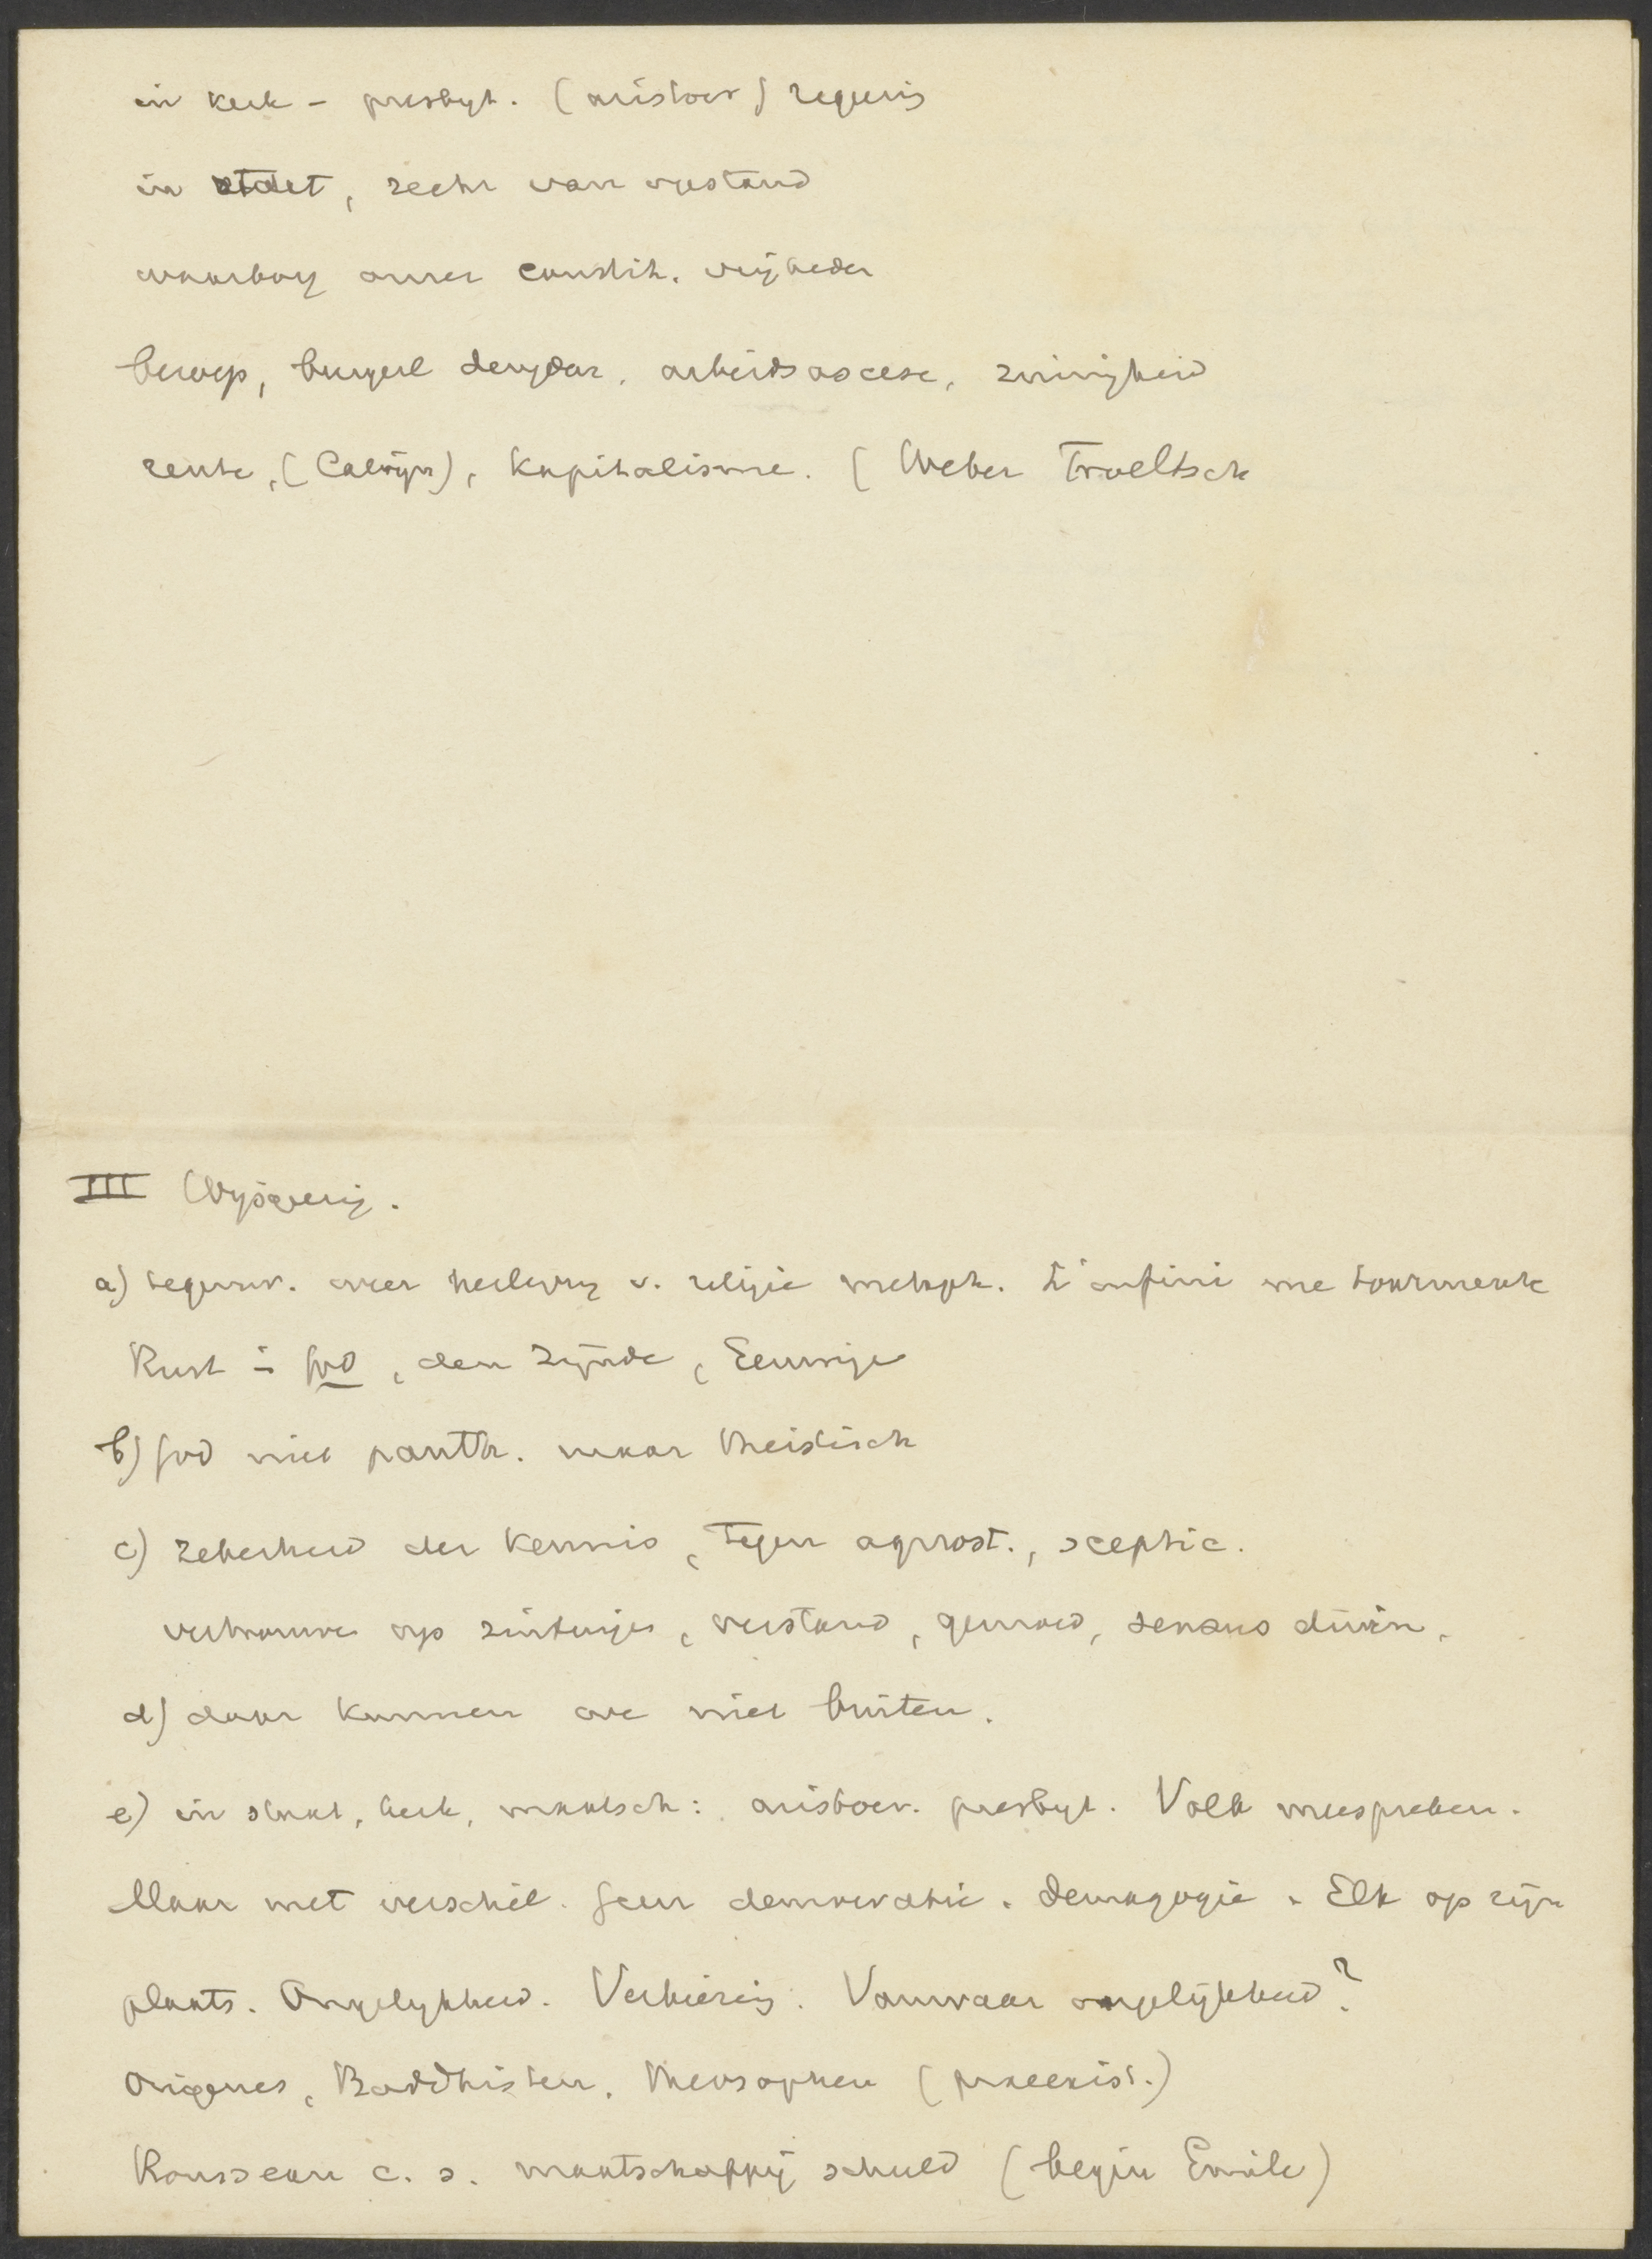 in kerk - presbyt. (aristocr) regering
in staet, recht van opstand
waarborg onzer constit. vrijheden
beroep, burgerl deugden, arbeidsascese, zuinigheid
rente, (Calvijn), kapitalisme. (Weber Troeltsch
III Wijsgeerig.
a) tegenw. weer herleving v. religie metaph. L'infini me tourmente
Rust in God, den Zijnde, Eeuwige
b) God niet panth. maar theistisch
c) Zekerheid der kennis, tegen agnost., sceptic.
vertrouwen op zintuigen, verstand, gemoed, sensus divin.
d) daar kunnen we niet buiten.
e) in staat, kerk, maatsch: aristocr. presbyt. Volk meespreken.
Maar met verschil. Geen democratie. demagogie. Elk op zijn
plaats. Ongelijkheid. Verkiezing. Vanwaar ongelijkheid?
Origenes, Boddhisten, theosophen (praeexist.)
Rousseau c. s. maatschappij schuld (begin Emile)